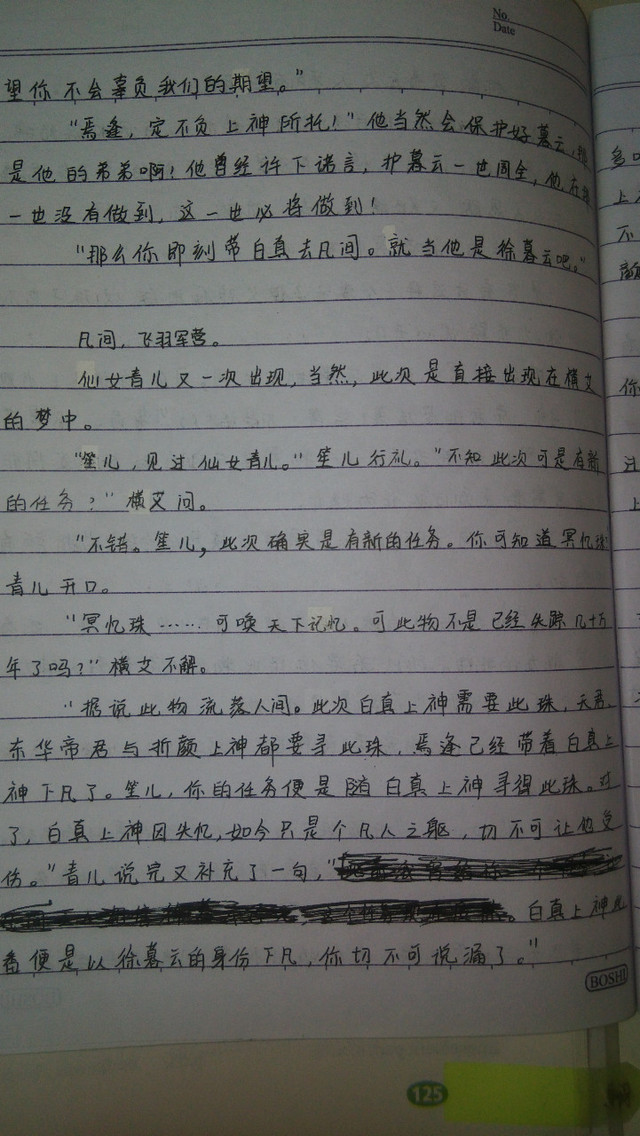 No.
Date
望你不会辜负我们的期望。"
"焉逢，定不负上神所托！"他当然会保护好暮云，
是他的弟弟啊！他曾经许下诺言，护暮云一世周全，他
一世没有做到，这一世必将做到！
"那么你即刻带白真去凡间。就当他是徐暮云吧。"
凡间，飞羽军营。
仙女青儿又一次出现，当然，此次是直接出现在横艾
的梦中。
"笙儿，见过仙女青儿。"笙儿行礼。"不知此次可是有新
的任务？"横艾问。
"不错。笙儿，此次确实是有新的任务。你可知道冥忆珠
青儿开口。
"冥忆珠……可唤天下记忆。可此物不是已经失踪几十万
年了吗？"横艾不解。
"据说此物流落人间。此次白真上神需要此珠，天君、
东华帝君与折颜上神都要寻此珠，焉逢已经带着白真上
神下凡了。笙儿，你的任务便是随白真上神寻得此珠。对
了，白真上神因失忆，如今只是个凡人之躯，切不可让他受
伤。"青儿说完又补充了一句，"
。白真上神此
番便是以徐暮云的身份下凡，你切不可说漏了。"
BOSHI
125
多
上
不
你
过
上